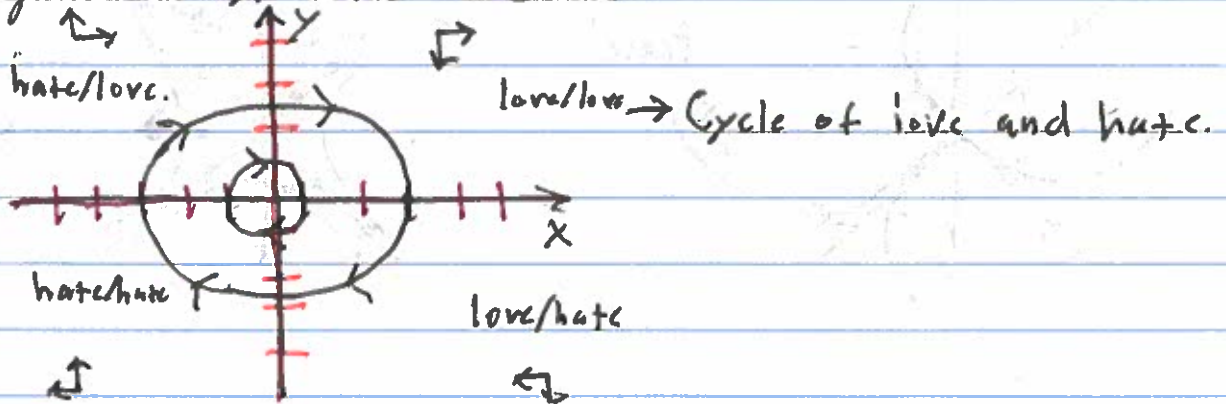 y
hate/love.
love/love → Cycle of love and hate.
x
hate/hate
love/hate